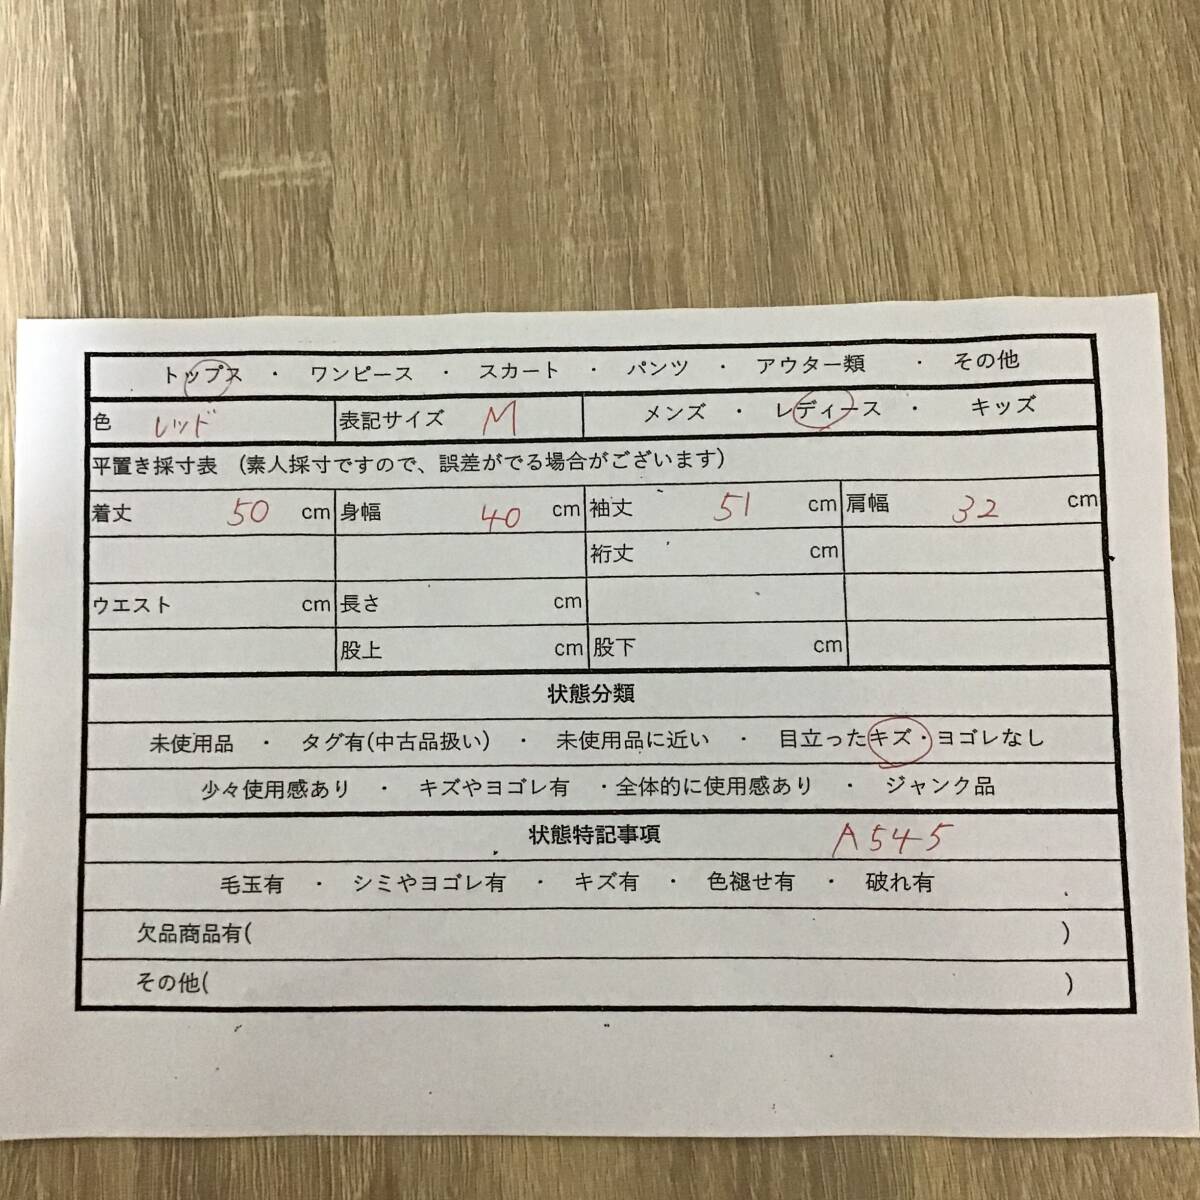 トップス ・ ワンピース ・ スカート ・ パンツ ・ アウター類 ・ その他
色 レッド 表記サイズ M メンズ ・ レディース ・ キッズ
平置き採寸表 (素人採寸ですので、誤差がでる場合がございます)
着丈 50 cm 身幅 40 cm 袖丈 51 cm 肩幅 32 cm
裄丈 cm
ウエスト cm 長さ cm
股上 cm 股下 cm
状態分類
未使用品 ・ タグ有(中古品扱い) ・ 未使用品に近い ・ 目立ったキズ・ヨゴレなし
少々使用感あり ・ キズやヨゴレ有 ・全体的に使用感あり ・ ジャンク品
状態特記事項 A545
毛玉有 ・ シミやヨゴレ有 ・ キズ有 ・ 色褪せ有 ・ 破れ有
欠品商品有( )
その他( )